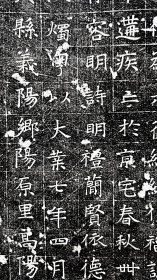 遘疾亡於京宅春秋卅
容明詩明禮蕑賢依德
燭以大業七年四月
縣義陽鄉陽原里高陽